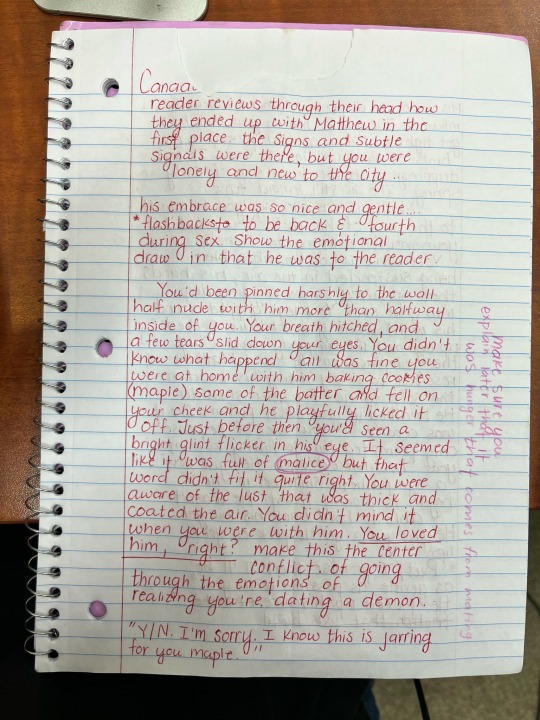 Canaa
reader reviews through their head how
they ended up with Matthew in the
first place. the signs and subtle
signals were there, but you were
lonely and new to the city...
his embrace was so nice and gentle....
*flashbacks to be back & fourth
during sex. Show the emotional
draw in that he was to the reader.
You'd been pinned harshly to the wall
half nude with him more than halfway
inside of you. Your breath hitched, and
a few tears slid down your eyes. You didn't
know what happend all was fine you
were at home with him baking cookies
(maple) some of the batter and fell on
your cheek and he playfully licked it
off. Just before then you'd seen a
bright glint flicker in his eye. It seemed
like it was full of malice, but that
word didn't fit it quite right. You were
aware of the lust that was thick and
coated the air. You didn't mind it
when you were with him. You loved
him, right? make this the center
conflict. of going
through the emotions of
realizing you're dating a demon.
"Y/N. I'm sorry. I know this is jarring
for you maple."
make sure you
explain later that it
was hunger that comes from mating